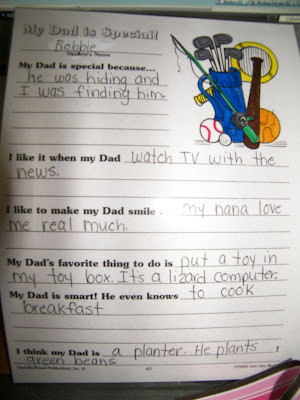 My Dad is Special!
Robbie
Student's Name
My Dad is special because...
he was hiding and
I was finding him.
I like it when my Dad watch TV with the
news.
I like to make my Dad smile . my nana love
me real much.
My Dad's favorite thing to do is put a toy in
my toy box. It's a lizard computer.
My Dad is smart! He even knows to cook
breakfast
I think my Dad is a planter. He plants !
green beans